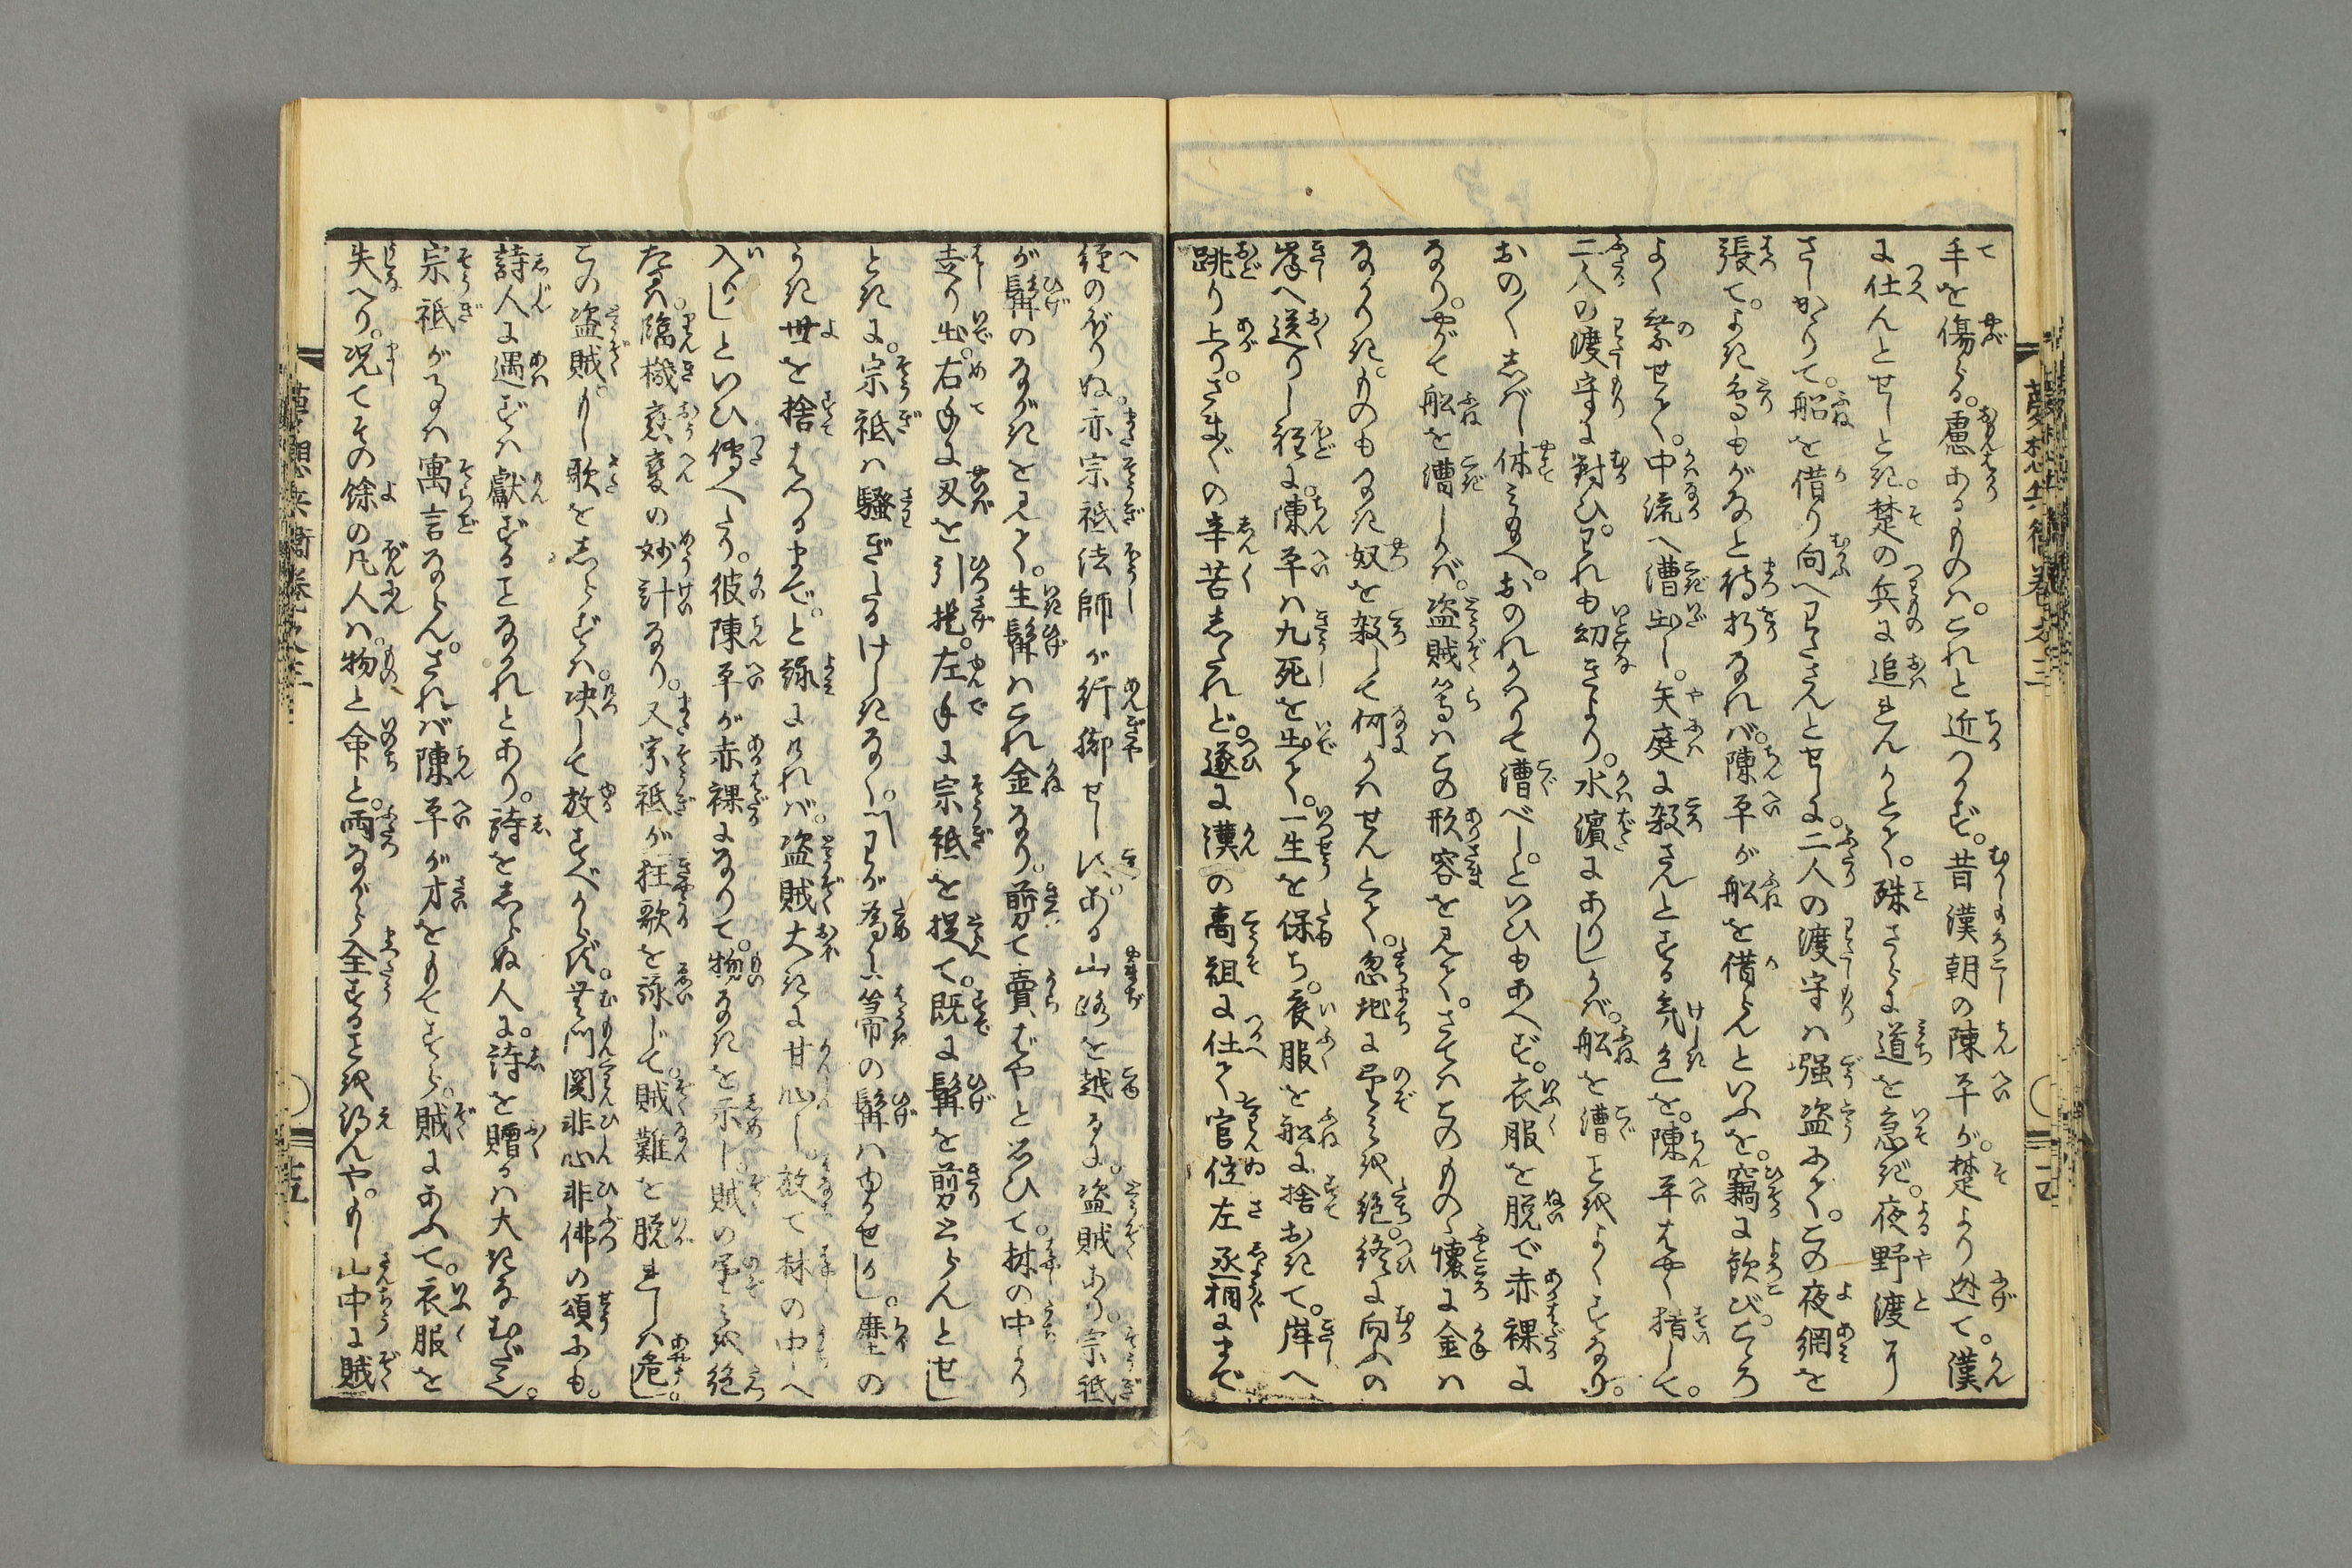 手を傷る。慮あるものは。これと近つかず。昔漢朝の陳平が。楚より迯て。漢
に仕んとせしとき。楚の兵に追れんかとて。殊さらに道を急ぎ。夜野渡に
さしかゝりて。船を借り向へわたさんとせしに。二人の渡守は強盗にて。この夜網を
張て。よき鳥もがなと待折なれば。陳平が船を借らんといふを。竊に歓び。こゝろ
よく乗せて。中流へ漕出し。矢庭に殺さんとする気色を。陳平はやく猜して。
二人の渡守に對ひ。われも幼きより。水濱にありしかば。船を漕ことをよくするなり。
おの〳〵しばし休み給へ。おのれかはりて漕べし。といひもあへず。衣服を脱で赤裸に
なり。やがて船を漕しかば。盗賊等はこの形容を見て。さてはこのもの。懐に金は
なかりき。ものもなき奴を殺して何かはせんとて。忽地に望みを絶。終に向ふの
岸へ送りし程に。陳平は九死を出て。一生を保ち。衣服を船に捨おきて。岸へ
跳り上り。さま〴〵の辛苦したれど。遂に漢の高祖に仕て官位左丞相にまで
夢想兵衛巻之三
十四
経のぼりぬ。亦宗祇法師が行脚せしに。ある山路を越るに。盗賊あり。宗祇
が髯のながきを見て。生髯はこれ金なり。剪て賣ばやと思ひて。林の中より
走り出。右手に刃を引提。左手に宗祇を捉て。既に髯を剪とらんとせし
ときに。宗祇は騒ぎたるけしきなく。わが為に箒の髯はゆるせかし。塵の
うき世を捨はつるまで。と詠ければ。盗賊大きに甘心し。放て林の中へ
入りしといひ傳へたり。彼陳平が赤裸になりて。物なきを示し。賊の望みを絶
たるは。臨機應変の妙計なり。又宗祇が狂歌を詠じて。賊難を脱れしは危し。
この盗賊。もし歌をしらずは。决して放すべからず。無門関非心非佛の頌にも。
詩人に遇ずは獻ずることなかれとあり。詩をしらぬ人に。詩を贈るは大きなむだ。
宗祇がことは寓言ならん。されば陳平が才をもてすら。賊にあふて。衣服を
失へり。况てその餘の凡人は。物と命と。両ながら全することを得んや。もし山中に賊
夢想兵衛巻之三
十五